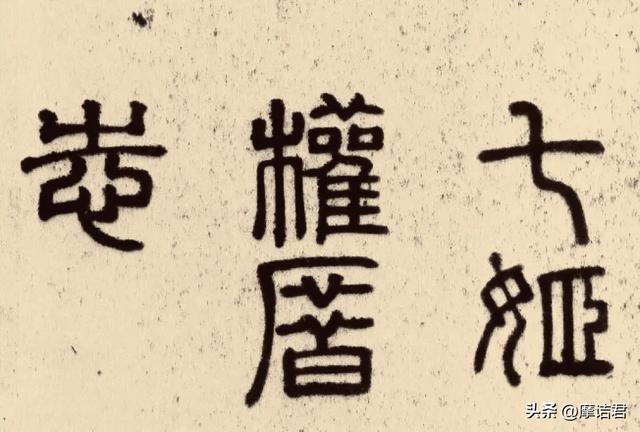 七姬
權厝
志
头条 @摩诘君